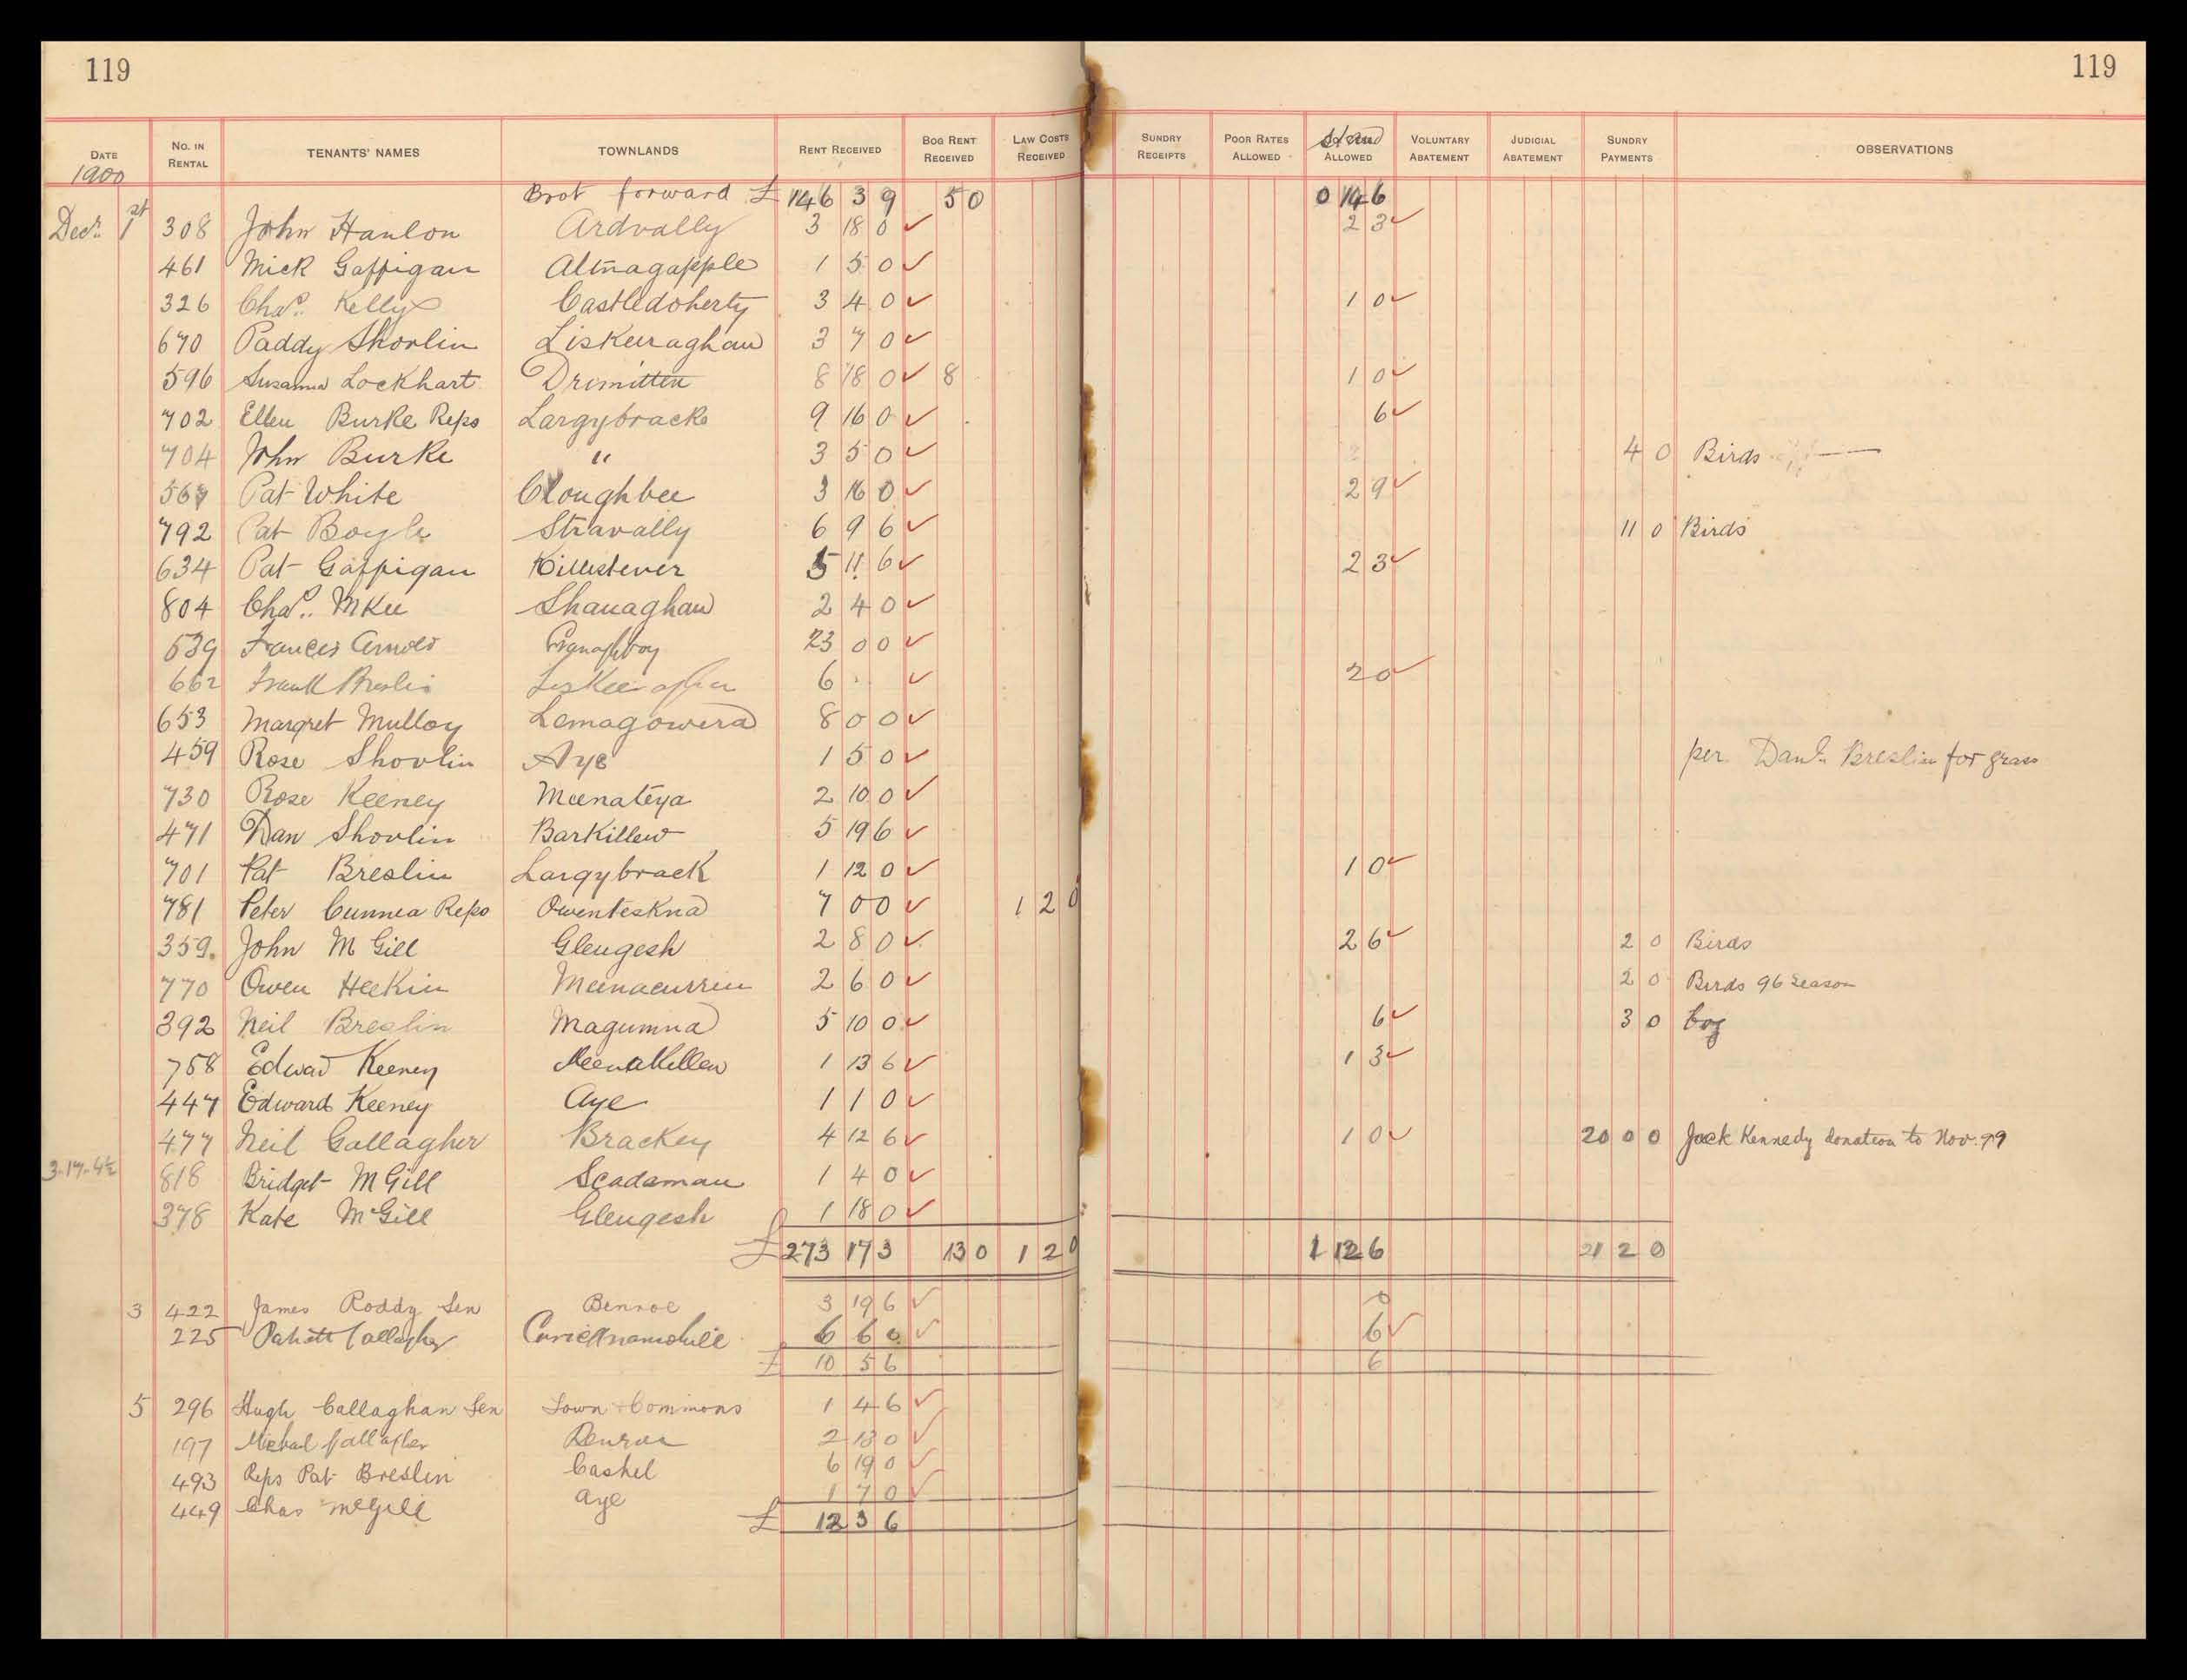 119 119
DATE No. IN RENTAL TENANTS' NAMES TOWNLANDS RENT RECEIVED BOG RENT RECEIVED LAW COSTS RECEIVED SUNDRY RECEIPTS POOR RATES ALLOWED ALLOWED VOLUNTARY ABATEMENT JUDICIAL ABATEMENT SUNDRY PAYMENTS OBSERVATIONS
1900
Brot forward £ 146 3 9 5 0 0 14 6
Decr 1st 308 John Hanlon Ardvally 3 18 0 ✓ 2 3 ✓
461 Mick Gaffigan Altnagapple 1 5 0 ✓
326 Chas. Kelly Castledoherty 3 4 0 ✓ 1 0 ✓
670 Paddy Shovlin Liskeeraghan 3 7 0 ✓
596 Susanna Lockhart Drimitten 8 18 0 ✓ 8 1 0 ✓
702 Ellen Burke Reps Largybrack 9 16 0 ✓ 6 ✓
704 John Burke " 3 5 0 ✓ 4 0 Birds
567 Pat White Cloughbee 3 16 0 ✓ 2 9 ✓
792 Pat Boyle Stravally 6 9 6 ✓ 11 0 Birds
634 Pat Gaffigan Killistever 5 11 6 ✓ 2 3 ✓
804 Chas. McKee Shanaghan 2 4 0 ✓
539 Frances Arnold Cranaghboy 23 0 0 ✓
662 Frank Breslin Liskeeraghan 6 ✓ 2 0 ✓
653 Margret Mulloy Lemagowera 8 0 0 ✓
459 Rose Shovlin Aye 1 5 0 ✓ per Danl. Breslin for grass
730 Rose Keeney Meenateya 2 10 0 ✓
471 Dan Shovlin Barkillew 5 19 6 ✓
701 Pat Breslin Largybrack 1 12 0 ✓ 1 0 ✓
781 Peter Cunnea Reps Owenteskna 7 0 0 ✓ 1 2 0
359. John M Gill Glengesh 2 8 0 ✓ 2 6 ✓ 2 0 Birds
770 Owen Heekin Meenacurrin 2 6 0 ✓ 2 0 Birds 96 Season
392 Neil Breslin Magumna 5 10 0 ✓ 6 ✓ 3 0 bog
758 Edwad Keeney Meenakillew 1 13 6 ✓ 1 3 ✓
447 Edward Keeney Aye 1 1 0 ✓
477 Neil Gallagher Brackey 4 12 6 ✓ 1 0 ✓ 20 0 0 Jack Kennedy donation to Nov. 99
3-17-4½ 818 Bridget M Gill Scadaman 1 4 0 ✓
378 Kate McGill Glengesh 1 18 0 ✓
£ 273 17 3 13 0 1 2 0 1 12 6 21 2 0
3 422 James Roddy Sen Benroe 3 19 6 ✓ 0
225 Patrick Gallagher 6 6 0 ✓ 6 ✓
£ 10 5 6 6
5 296 Hugh Callaghan Sen Town Commons 1 4 6 ✓
197 Michael Gallagher Benroe 2 13 0 ✓
493 Reps Pat Breslin Cashel 6 19 0 ✓
449 Chas McGill Aye 1 7 0 ✓
£ 12 3 6